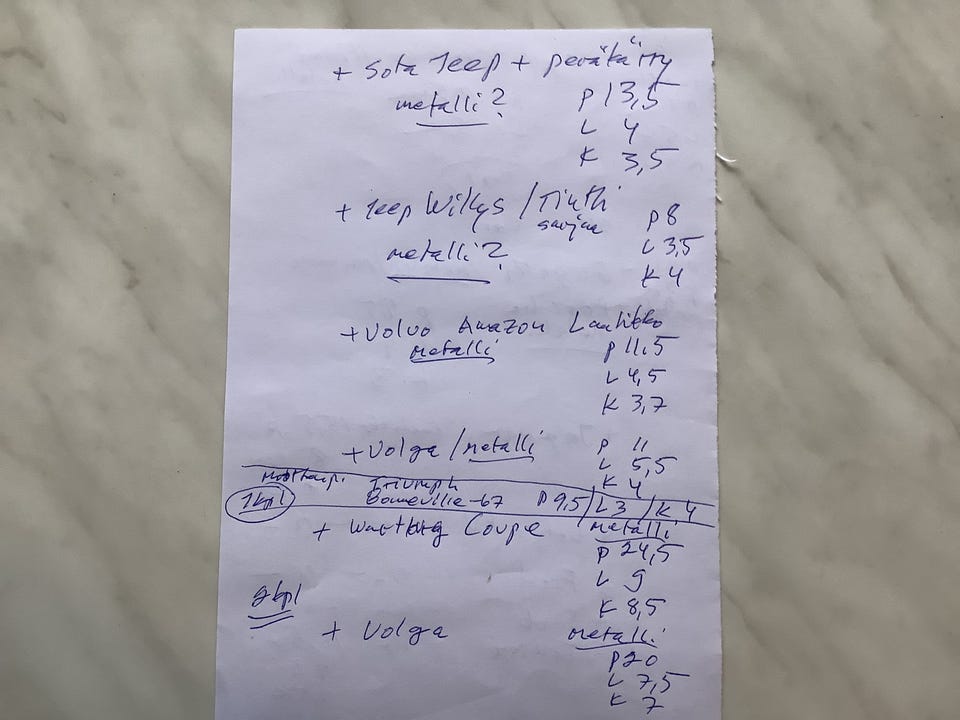 + Sota Jeep + peräkärry
metalli? P 13,5
L 4
K 3,5
+ Jeep Willys / Tintti
sarjaa P 8
metalli? L 3,5
K 4
+ Volvo Amazon Laatikko
metalli P 11,5
L 4,5
K 3,7
+ Volga / metalli P 11
L 5,5
K 4
Triumph
1kpl Bonneville -67 P 9,5 / L 3 / K 4
+ Wartburg Coupe metalli
P 24,5
L 9
2kpl K 8,5
+ Volga metalli
P 20
L 7,5
K 7